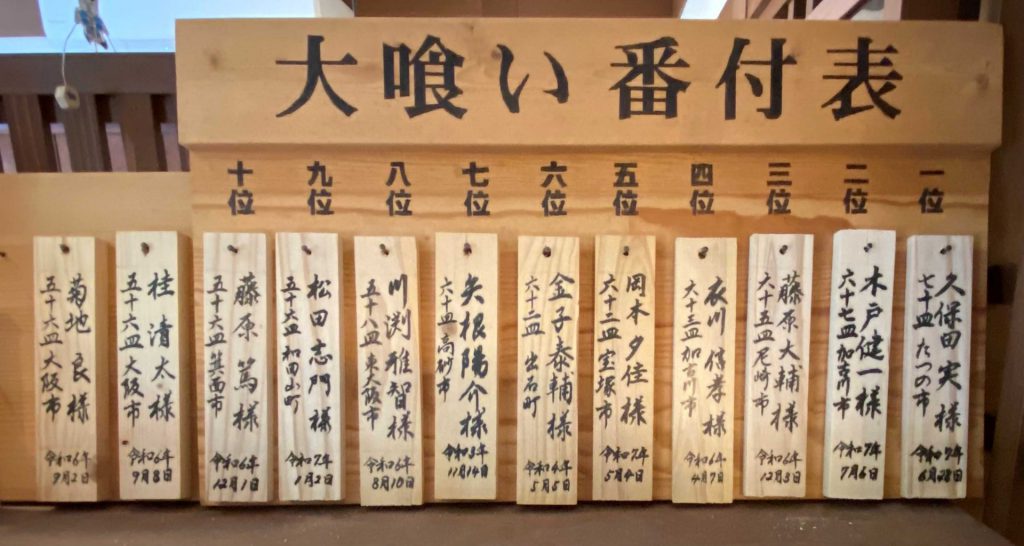 大喰い番付表
一位
久保田 実 様
七十四皿 たつの市
令和7年
6月28日
二位
木戸健一様
六十七皿 加古川市
令和7年
7月6日
三位
藤原大輔様
六十五皿 尼崎市
令和6年
12月3日
四位
衣川信孝様
六十三皿 加古川市
令和6年
4月7日
五位
岡本夕佳様
六十二皿 宝塚市
令和7年
5月4日
六位
金子泰輔様
六十二皿 出石町
令和4年
5月5日
七位
矢根陽介様
六十皿 高砂市
令和3年
11月14日
八位
川渕雅智様
五十八皿 東大阪市
令和6年
8月10日
九位
松田志門様
五十六皿 和田山町
令和7年
1月2日
十位
藤原 篤 様
五十六皿 箕面市
令和6年
12月1日
桂 清太 様
五十六皿 大阪市
令和6年
9月8日
菊地 良 様
五十六皿 大阪市
令和6年
9月2日